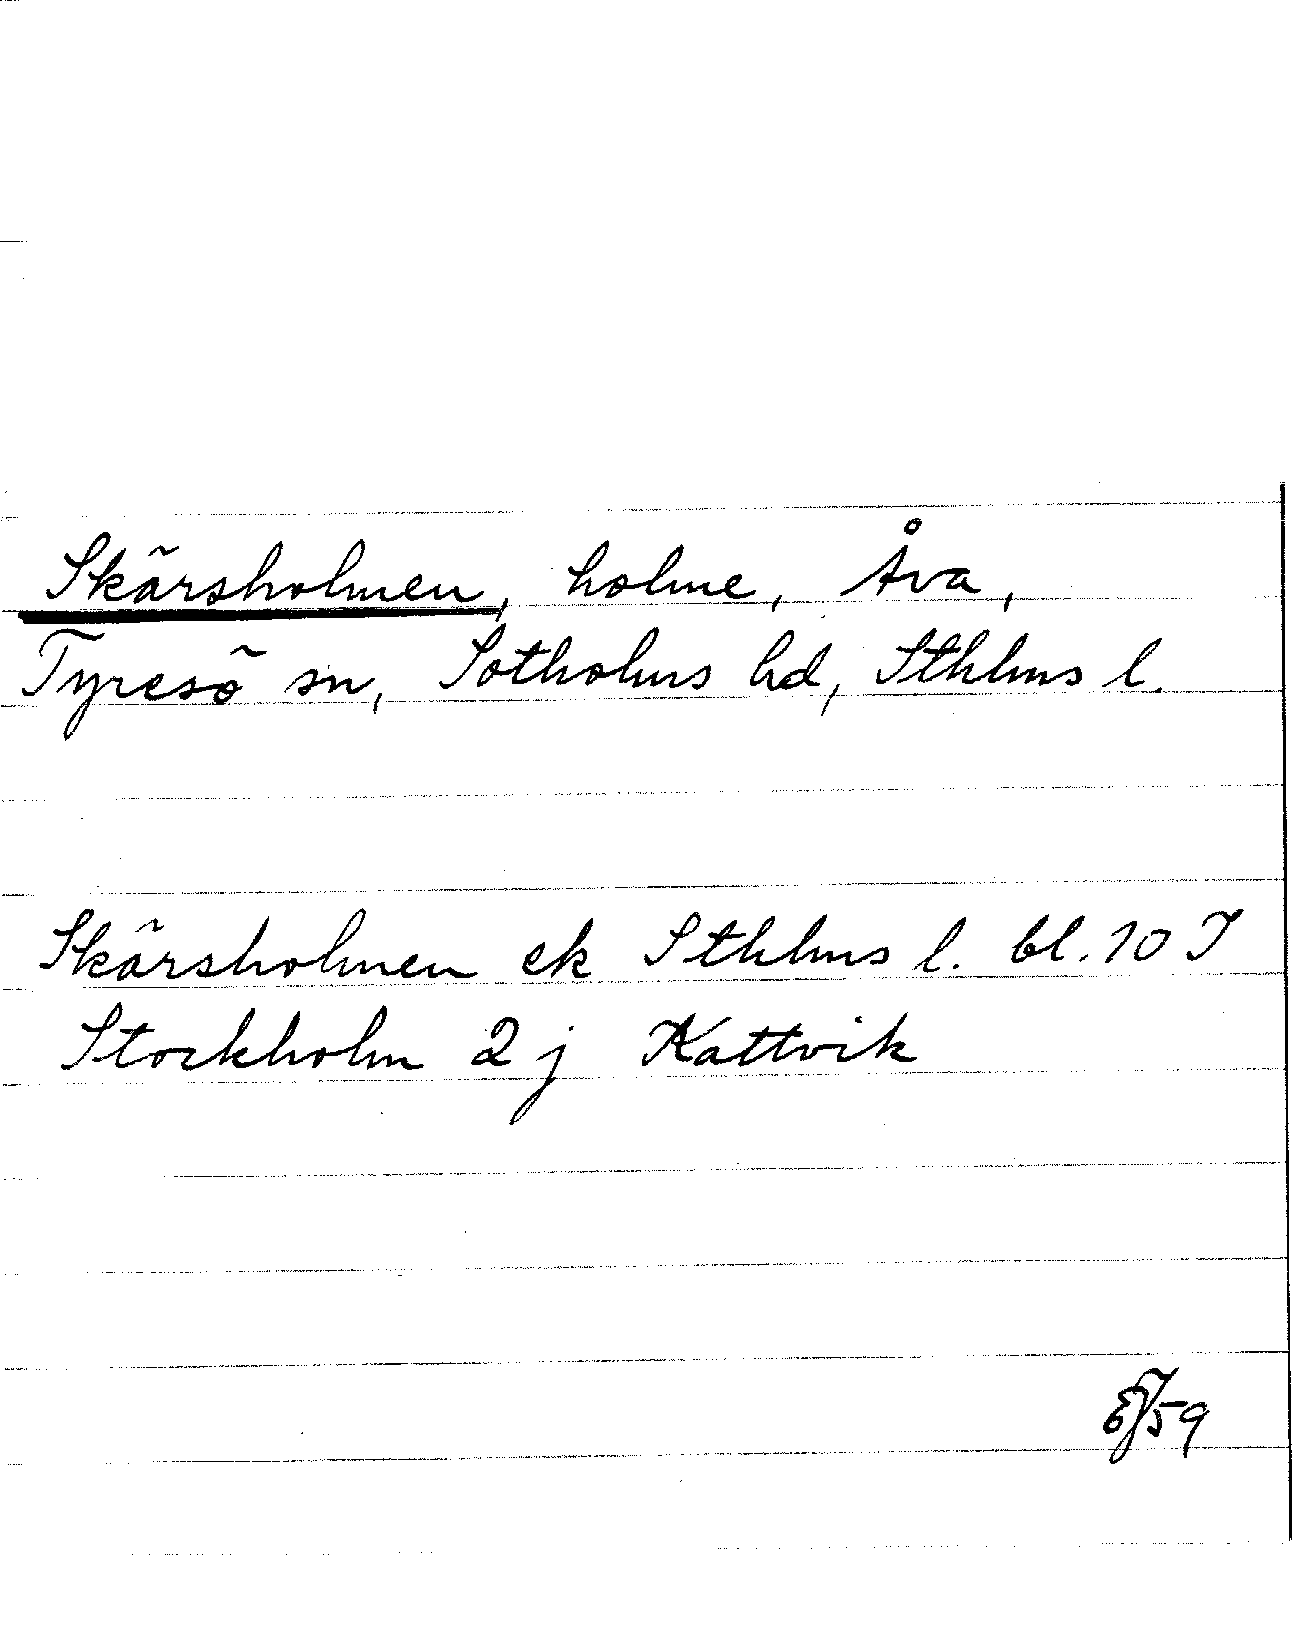 Skärsholmen, holme, Åva,
Tyresö sn, Sotholms hd, Sthlms l.
Skärsholmen ek Sthlms l. bl. 10 J
Stockholm 2 j Kattvik
EJ/59